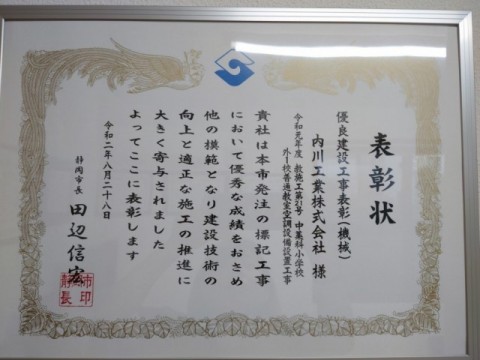 表彰状
優良建設工事表彰(機械)
内川工業株式会社 様
令和元年度 教施工第21号 中藁科小学校
外1校普通教室空調設備設置工事
貴社は本市発注の標記工事
において優秀な成績をおさめ
他の模範となり建設技術の
向上と適正な施工の推進に
大きく寄与されました
よってここに表彰します
令和二年八月二十八日
静岡市長 田辺信宏